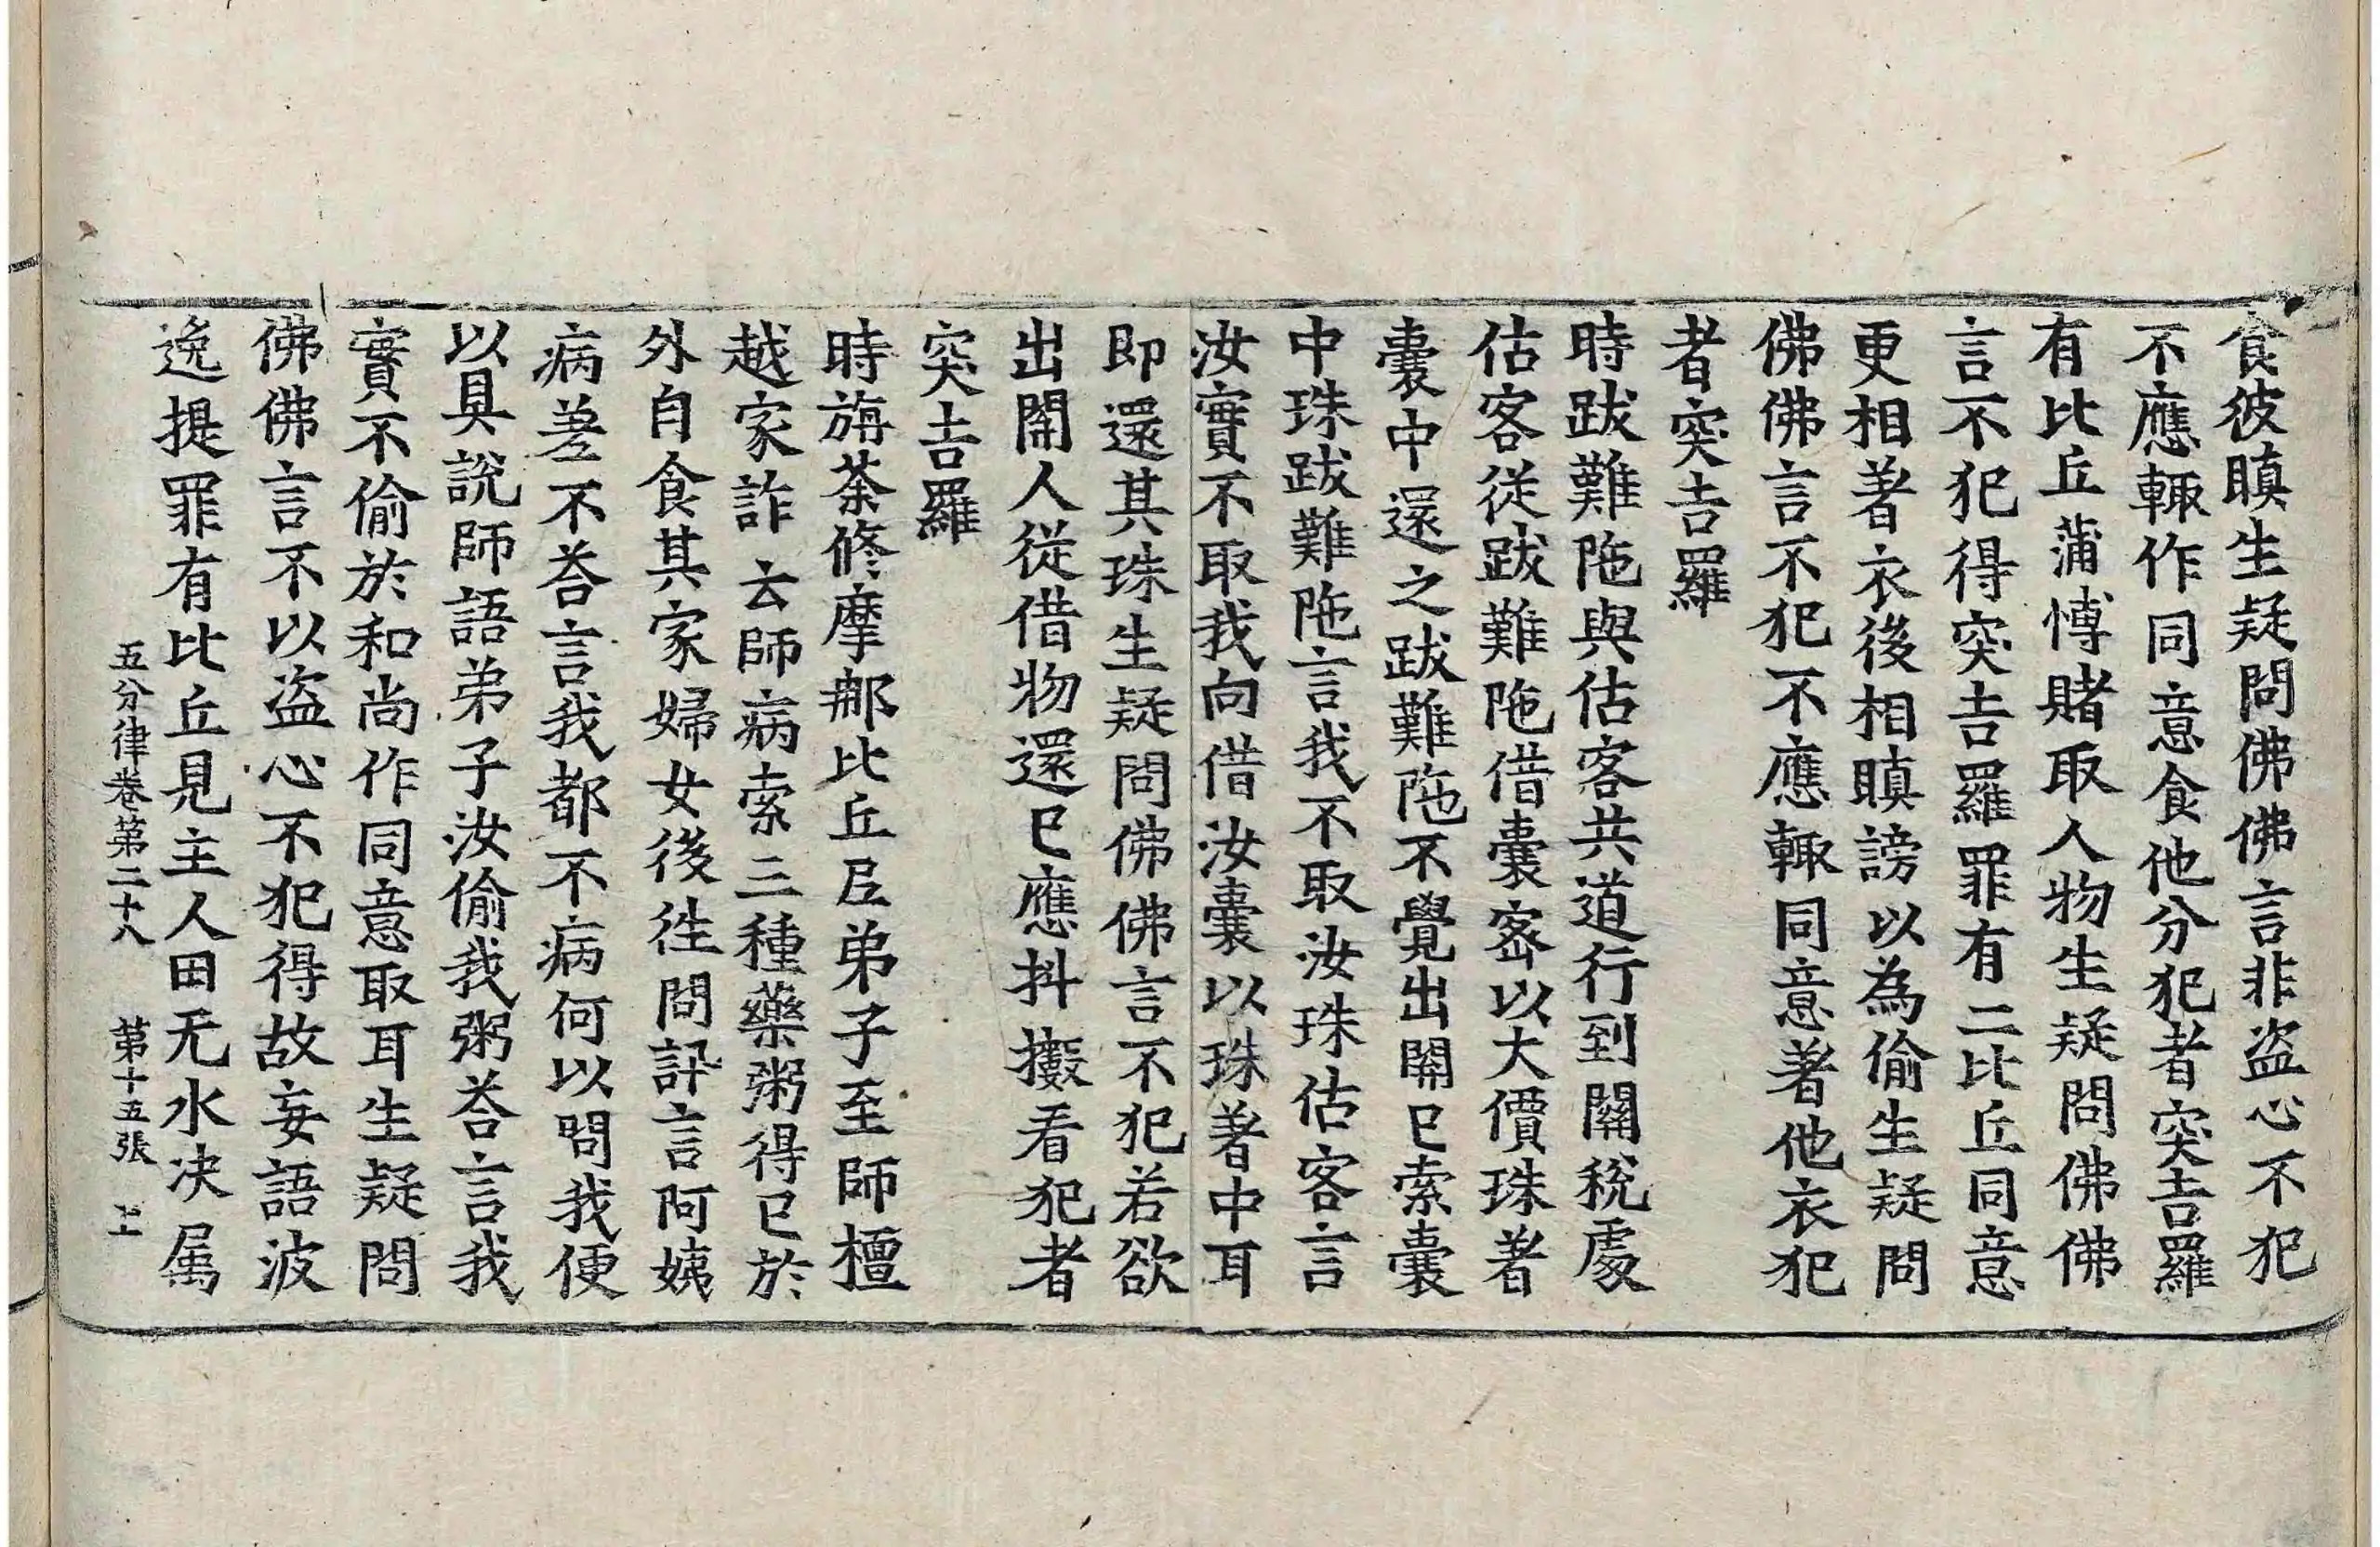 食彼瞋生疑問佛佛言非盗心不犯
不應輙作同意食他分犯者突吉羅
有比丘蒱愽賭取人物生疑問佛佛
言不犯得突吉羅罪有二比丘同意
更相著衣後相瞋謗以為偷生疑問
佛佛言不犯不應輙同意著他衣犯
者突吉羅
時跋難陁與估客共道行到關稅處
估客從跋難陁借囊密以大價珠著
囊中還之跋難陁不覺出關已索囊
中珠跋難陁言我不取汝珠估客言
汝實不取我向借汝囊以珠著中耳
即還其珠生疑問佛佛言不犯若欲
出關人從借物還已應抖擻看犯者
突吉羅
時旃荼修摩那比丘尼弟子至師檀
越家詐云師病索三種藥粥得已於
外自食其家婦女後徃問訊言阿姨
病差不荅言我都不病何以問我便
以具說師語弟子汝偷我粥荅言我
實不偷於和尚作同意取耳生疑問
佛佛言不以盗心不犯得故妄語波
逸提罪有比丘見主人田无水决属
五分律卷第二十八 第十五張 上